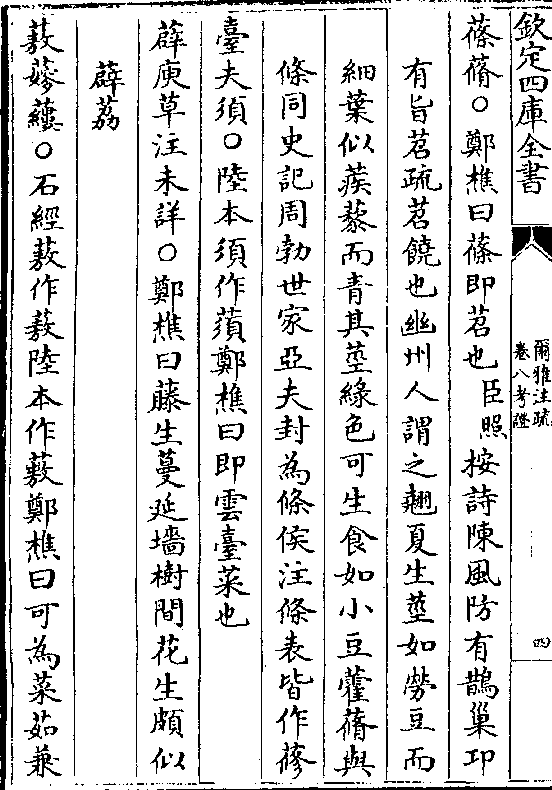 欽定四庫全書
爾雅注疏
卷八考證
四
蓧蓨○鄭樵曰蓧即苕也臣照按詩陳風防有鵲巢卭
有旨苕疏苕饒也幽州人謂之翹夏生莖如勞豆而
細葉似蒺藜而青其莖緑色可生食如小豆藿蓨與
條同史記周勃世家亞夫封為條侯注條表皆作蓨
臺夫須○陸本須作蕦鄭樵曰即雲臺菜也
薜庾草注未詳○鄭樵曰藤生蔓延墻樹間花生頗似
薜荔
蔜䕅䕲○石經蔜作蔜陸本作藙鄭樵曰可為菜茹兼